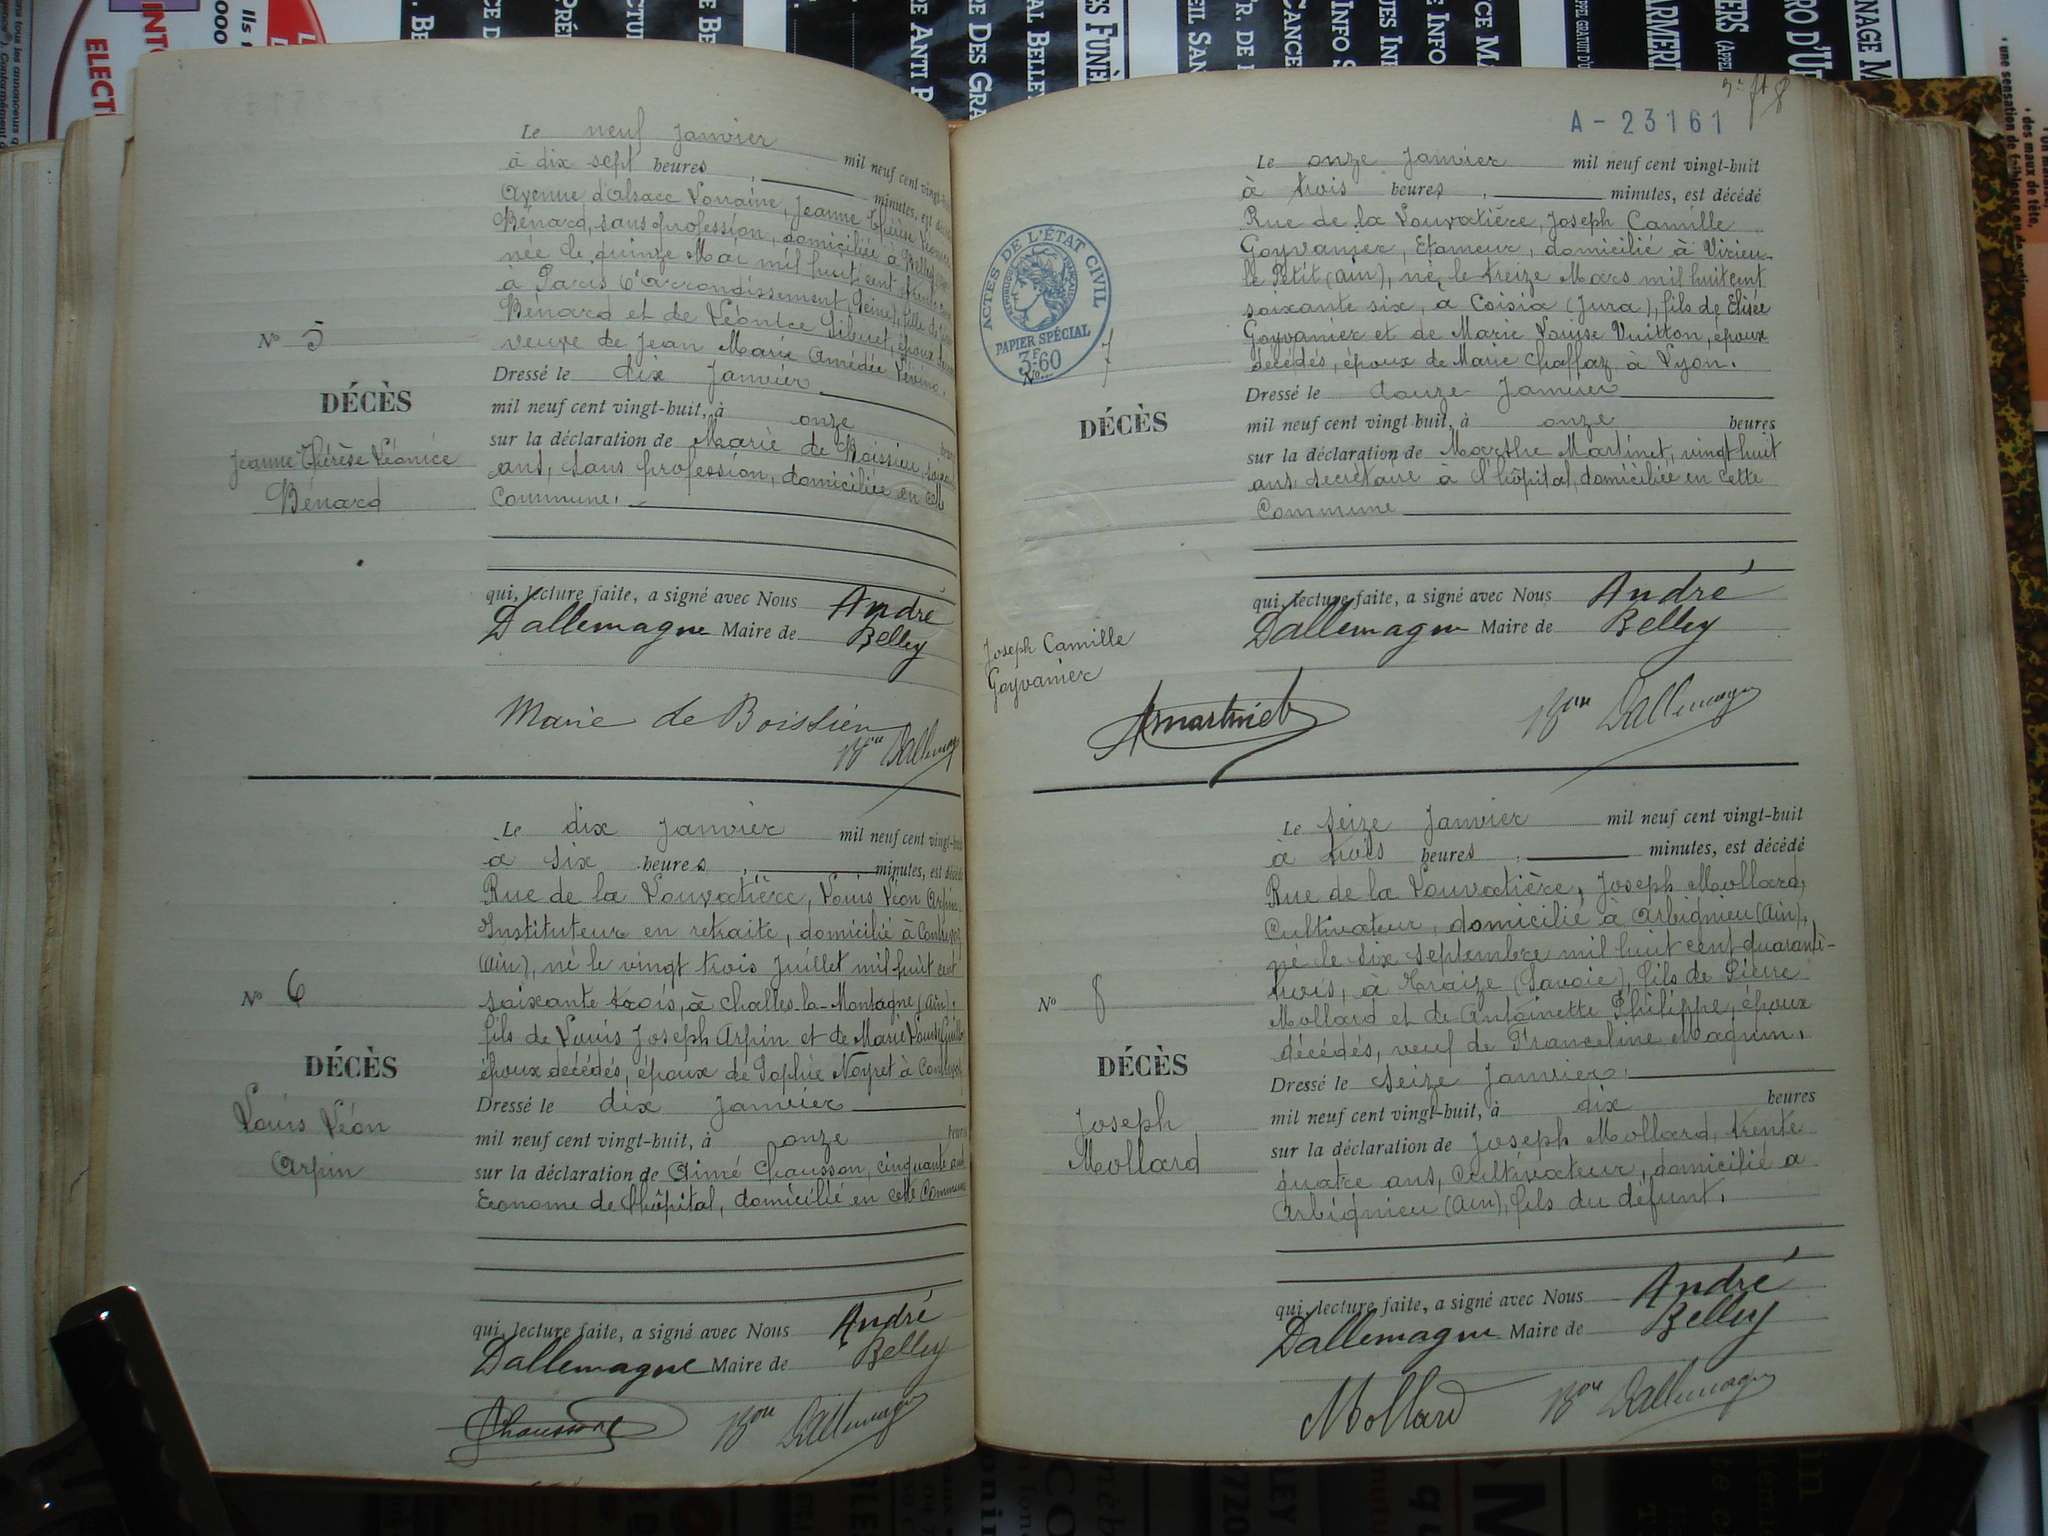 Le neuf Janvier mil neuf cent vingt-huit
à dix sept heures, minutes, est
Avenue d'Alsace Lorraine, Jeanne Thérèse Léonice
Bénard, sans profession, domiciliée à Belley
née le quinze Mai mil huit cent
à Paris 6e arrondissement (Seine), fille de
Bénard et de Léontce époux
veuve de Jean Marie Amédée
Nº 5
Dressé le dix Janvier
DÉCÈS
mil neuf cent vingt-huit, à onze
sur la déclaration de Marie de Boissieu,
Jeanne Thérèse Léonice
ans, sans profession, domiciliée en cette
Bénard
Commune.
qui, lecture faite, a signé avec Nous André
Dallemagne Maire de Belley
Marie de Boissieu
Bon Dallemagne
Le dix Janvier mil neuf cent vingt-huit
à six heures, minutes, est décédé
Rue de la Louvatière, Louis Léon Arpin
Instituteur en retraite, domicilié à Contrevoz
(Ain), né le vingt trois Juillet mil huit cent
Nº 6
soixante trois, à Challes-la-Montagne (Ain),
fils de Louis Joseph Arpin et de Marie Louise
DÉCÈS
époux décédés, époux de Sophie Noyret à Contrevoz
Dressé le dix Janvier
Louis Léon
mil neuf cent vingt-huit, à onze heures
Arpin
sur la déclaration de Aimé Chausson, cinquante ans
Econome de l'hôpital, domicilié en cette Commune
qui, lecture faite, a signé avec Nous André
Dallemagne Maire de Belley
Chausson
Bon Dallemagne
A-23161
Le onze Janvier mil neuf cent vingt-huit
à trois heures, minutes, est décédé
Rue de la Louvatière, Joseph Camille
Goyvanier, Etameur, domicilié à Virieu
le Petit (Ain), né le treize Mars mil huit cent
soixante six, à Coisia (Jura), fils de Elisée
Goyvanier et de Marie Louise Vuitton, époux
décédés, époux de Marie Chaffaz à Lyon.
ACTES DE L'ÉTAT CIVIL
RÉPUBLIQUE FRANÇAISE
PAPIER SPÉCIAL
3F60
No 7
Dressé le douze Janvier
DÉCÈS
mil neuf cent vingt huit, à onze heures
sur la déclaration de Marthe Martinet, vingt huit
ans secrétaire à l'hôpital, domiciliée en cette
Commune
qui, lecture faite, a signé avec Nous André
Dallemagne Maire de Belley
Joseph Camille
Goyvanier
Martinet
Bon Dallemagne
Le seize Janvier mil neuf cent vingt-huit
à trois heures, minutes, est décédé
Rue de la Louvatière, Joseph Mollard,
Cultivateur, domicilié à Arbignieu (Ain),
né le six septembre mil huit cent quarante-
trois, à Traize (Savoie), fils de Pierre
Nº 8
Mollard et de Antoinette Philippe, époux
décédés, veuf de Franceline Magnin.
DÉCÈS
Dressé le seize Janvier.
Joseph
mil neuf cent vingt-huit, à dix heures
Mollard
sur la déclaration de Joseph Mollard, trente
quatre ans, Cultivateur, domicilié à
Arbignieu (Ain), fils du défunt.
qui, lecture faite, a signé avec Nous André
Dallemagne Maire de Belley
Mollard
Bon Dallemagne